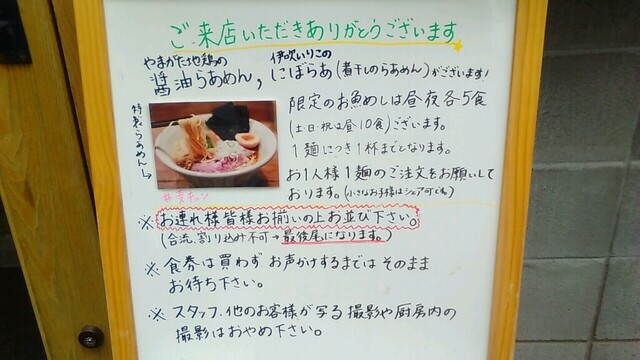 ご来店いただきありがとうございます
やまがた地鶏の
醤油らあめん,
伊吹いりこの
にぼらあ(煮干しのらあめん)がございます!
特製らあめん→
限定のお魚めしは昼夜各5食
(土・日・祝は昼10食)ございます。
1麺につき1杯までとなります。
お1人様1麺のご注文をお願いして
おります。(小さなお子様はシェア可です)
※ お連れ様皆様お揃いの上お並び下さい。
(合流、割り込み不可→最後尾になります。)
※ 食券は買わず お声かけするまでは そのまま
お待ち下さい。
※ スタッフ、他のお客様が写る撮影や厨房内の
撮影はおやめ下さい。